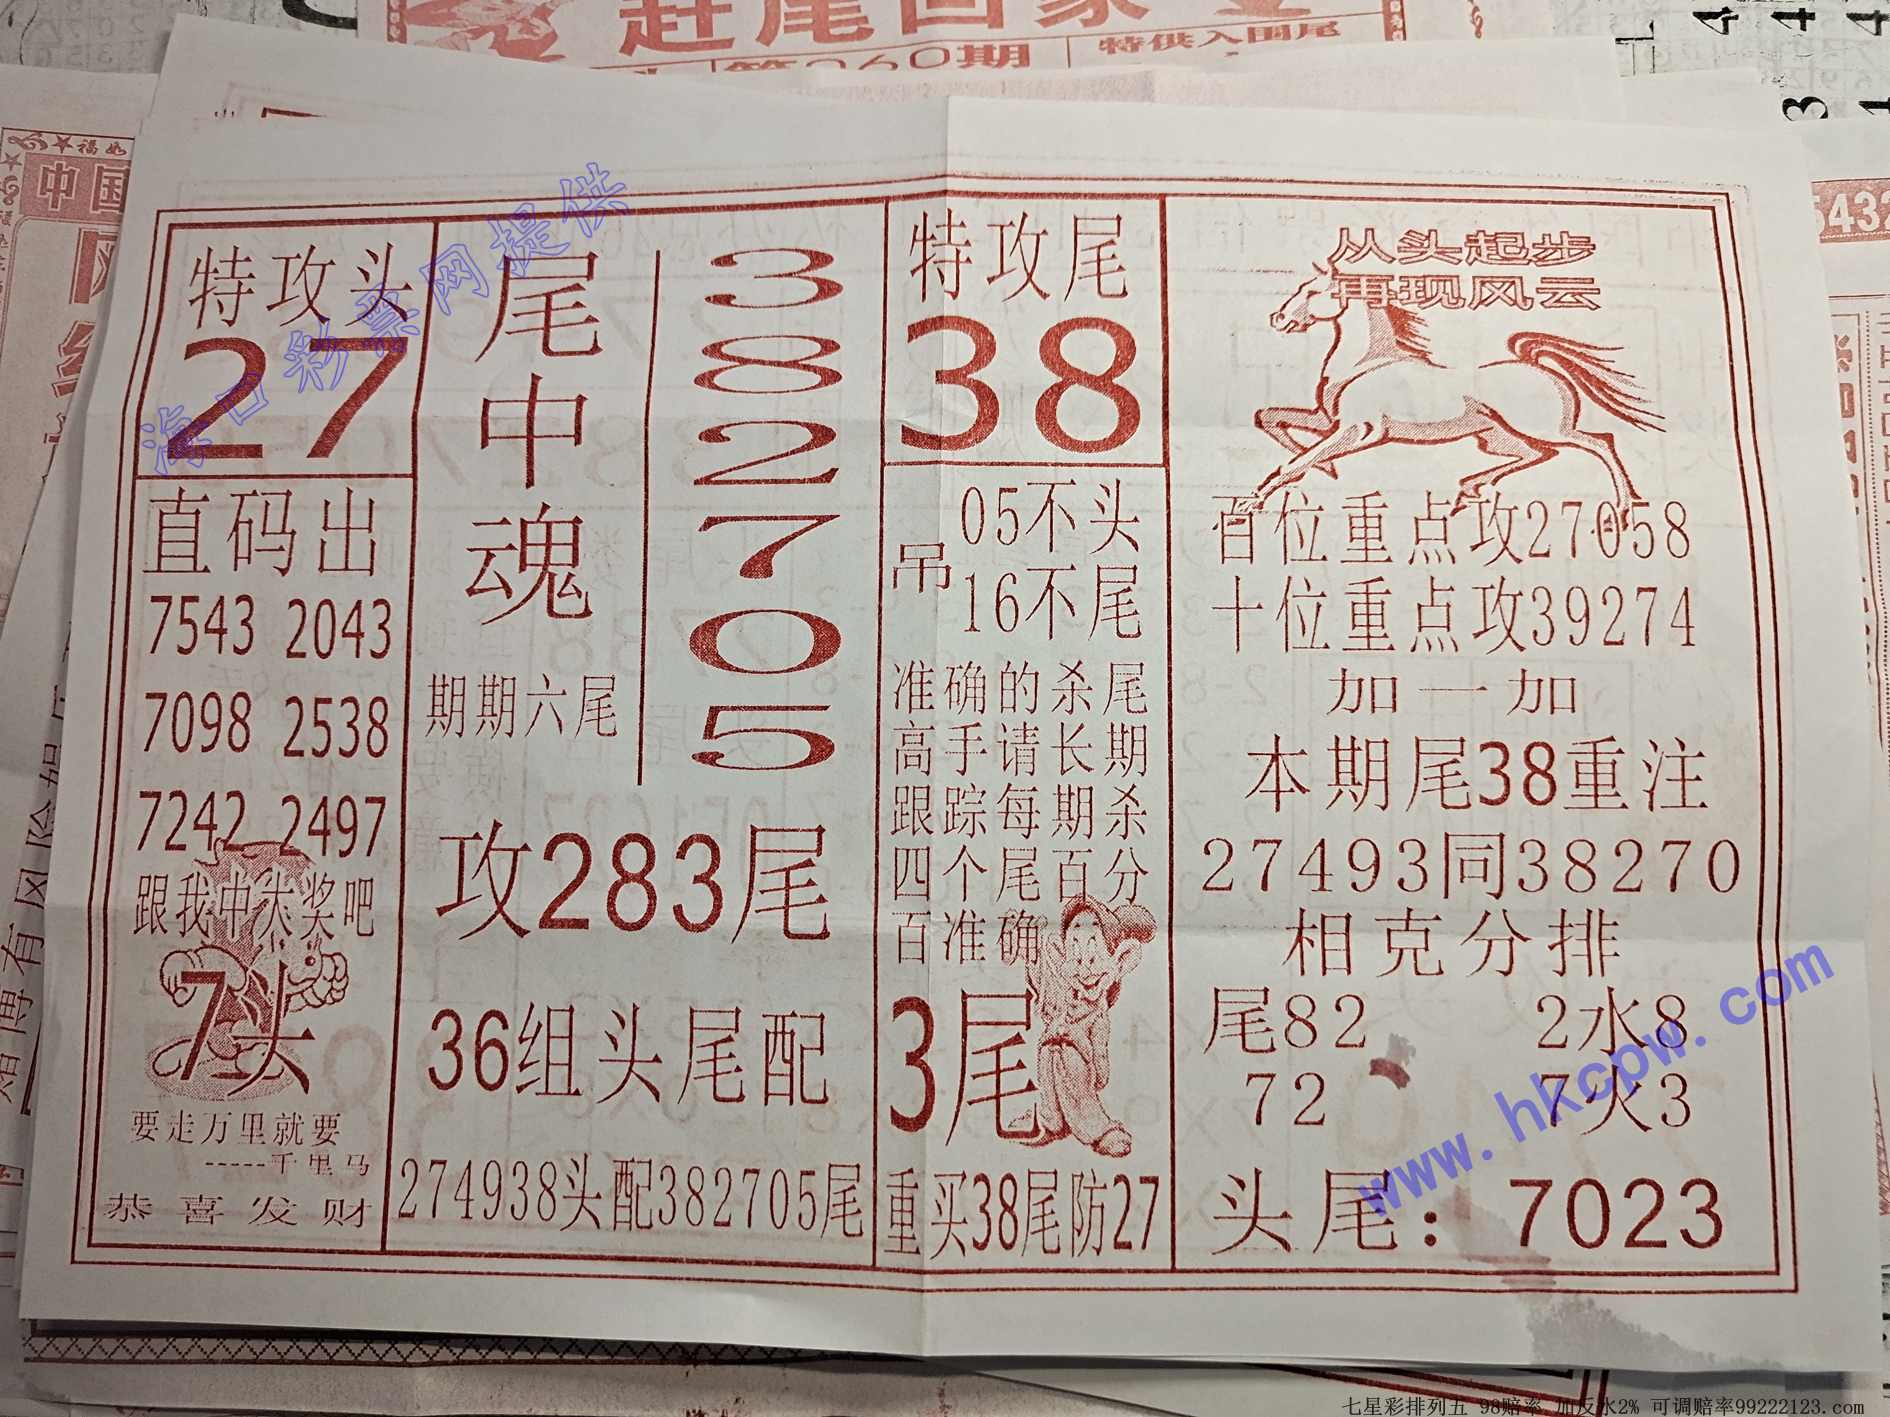 赶尾回家
第260期
特供入围尾
海口彩票网提供
特攻头
27
直码出
7543 2043
7098 2538
7242 2497
跟我中大奖吧
7头
要走万里就要
-----千里马
恭喜发财
尾中魂
期期六尾
3
8
2
7
0
5
攻283尾
36组头尾配
274938头配382705尾
特攻尾
38
吊
05不头
16不尾
准确的杀尾
高手请长期
跟踪每期杀
四个尾百分
百准确
3尾
重买38尾防27
从头起步
再现风云
百位重点攻27058
十位重点攻39274
加一加
本期尾38重注
27493同38270
相克分排
尾82 2水8
72 7火3
头尾：7023
www.hkcpw.com
中国
福
5432
赌博有风险
七星彩排列五 98赔率 加反水2% 可调赔率99222123.com